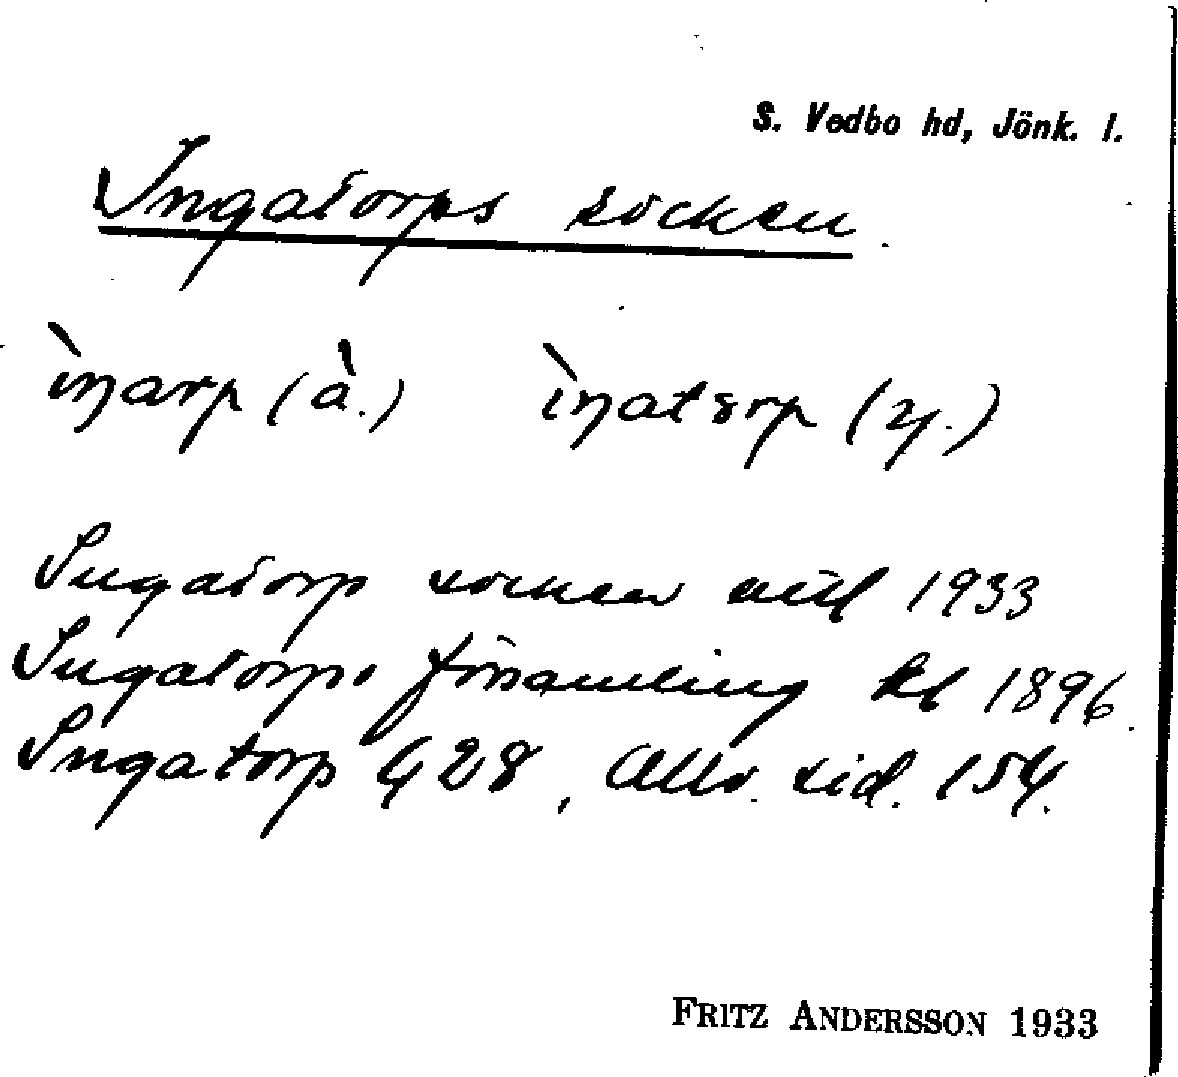 S. Vedbo hd, Jönk. l.
Ingatorps socken
ìŋarp (ä.) ìŋatorp (y.)
Ingatorp socken 1933
Ingatorps församling Rb 1896
Ingatorp 428, sid. 154.
FRITZ ANDERSSON 1933